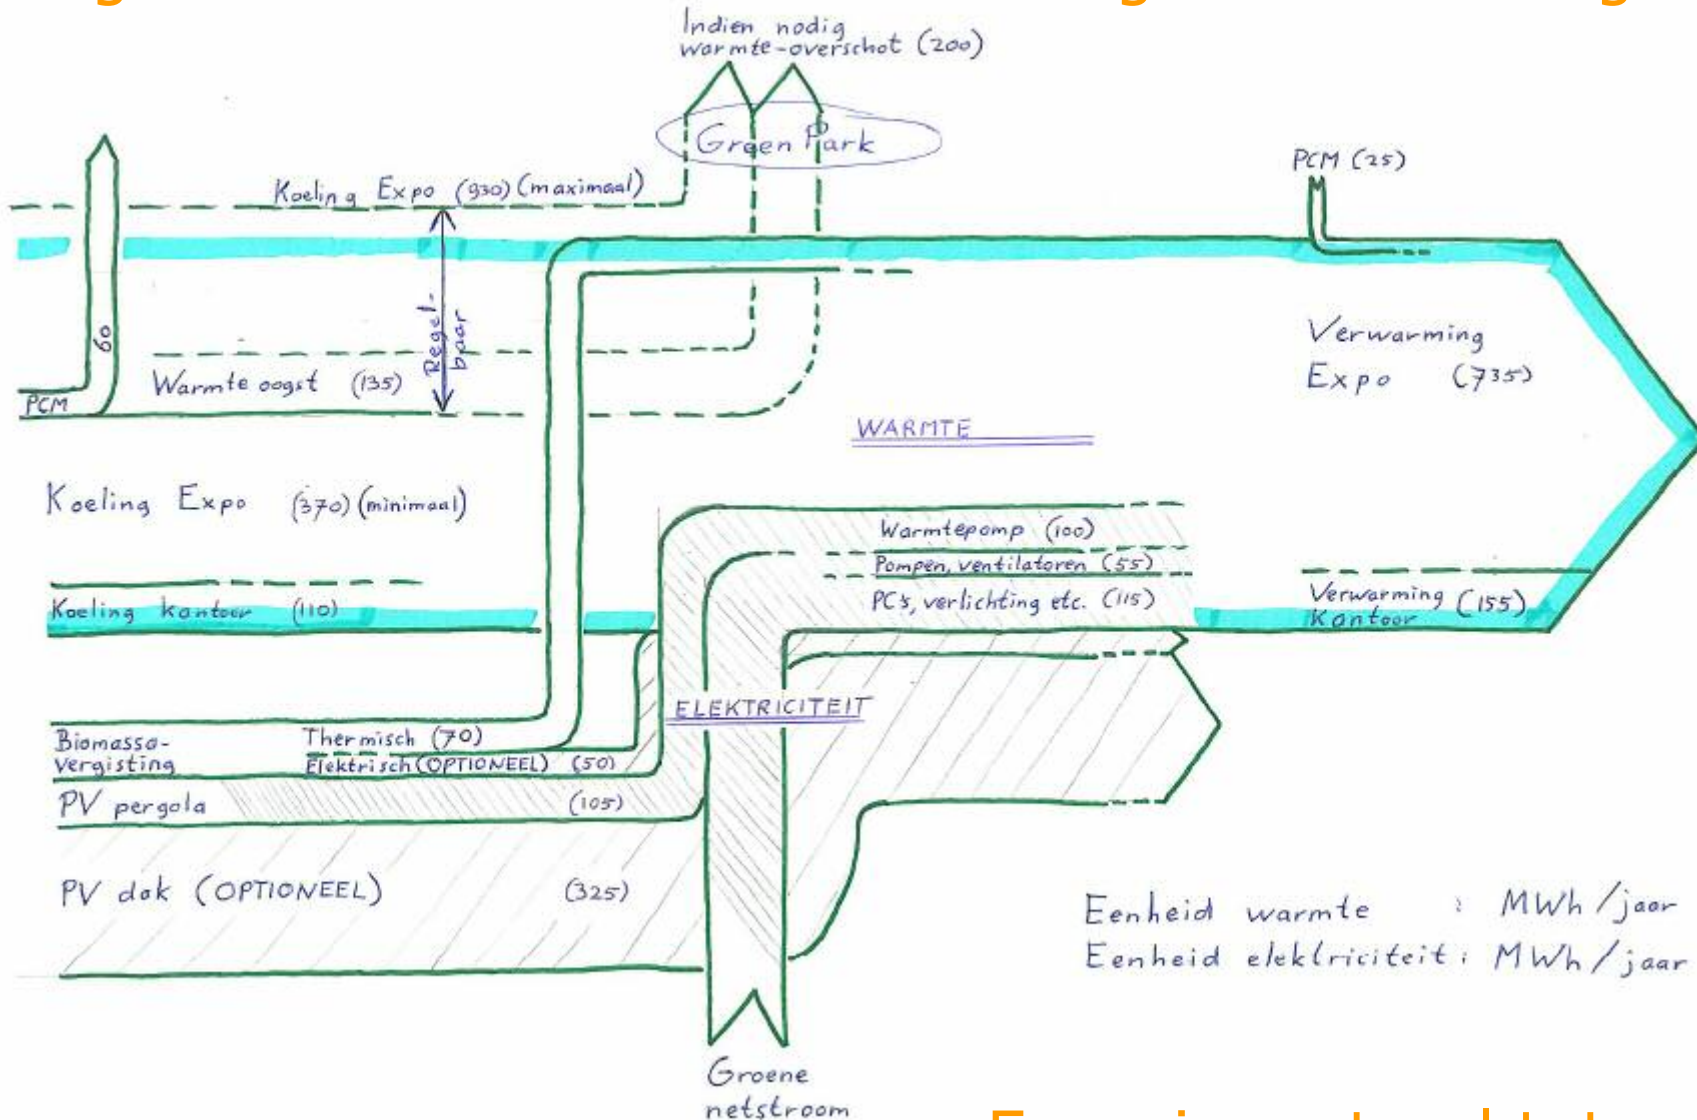 Indien nodig
warmte-overschot (200)
Green Park
PCM (25)
Koeling Expo (930) (maximaal)
60
Regel-
baar
Verwarming
Expo (735)
Warmte oogst (135)
PCM
WARMTE
Koeling Expo (370) (minimaal)
Warmtepomp (100)
Pompen, ventilatoren (55)
PC's, verlichting etc. (115)
Verwarming (155)
Kantoor
Koeling kantoor (110)
ELEKTRICITEIT
Biomassa-
vergisting
Thermisch (70)
Elektrisch (OPTIONEEL) (50)
PV pergola (105)
PV dak (OPTIONEEL) (325)
Eenheid warmte : MWh/jaar
Eenheid elektriciteit: MWh/jaar
Groene
netstroom